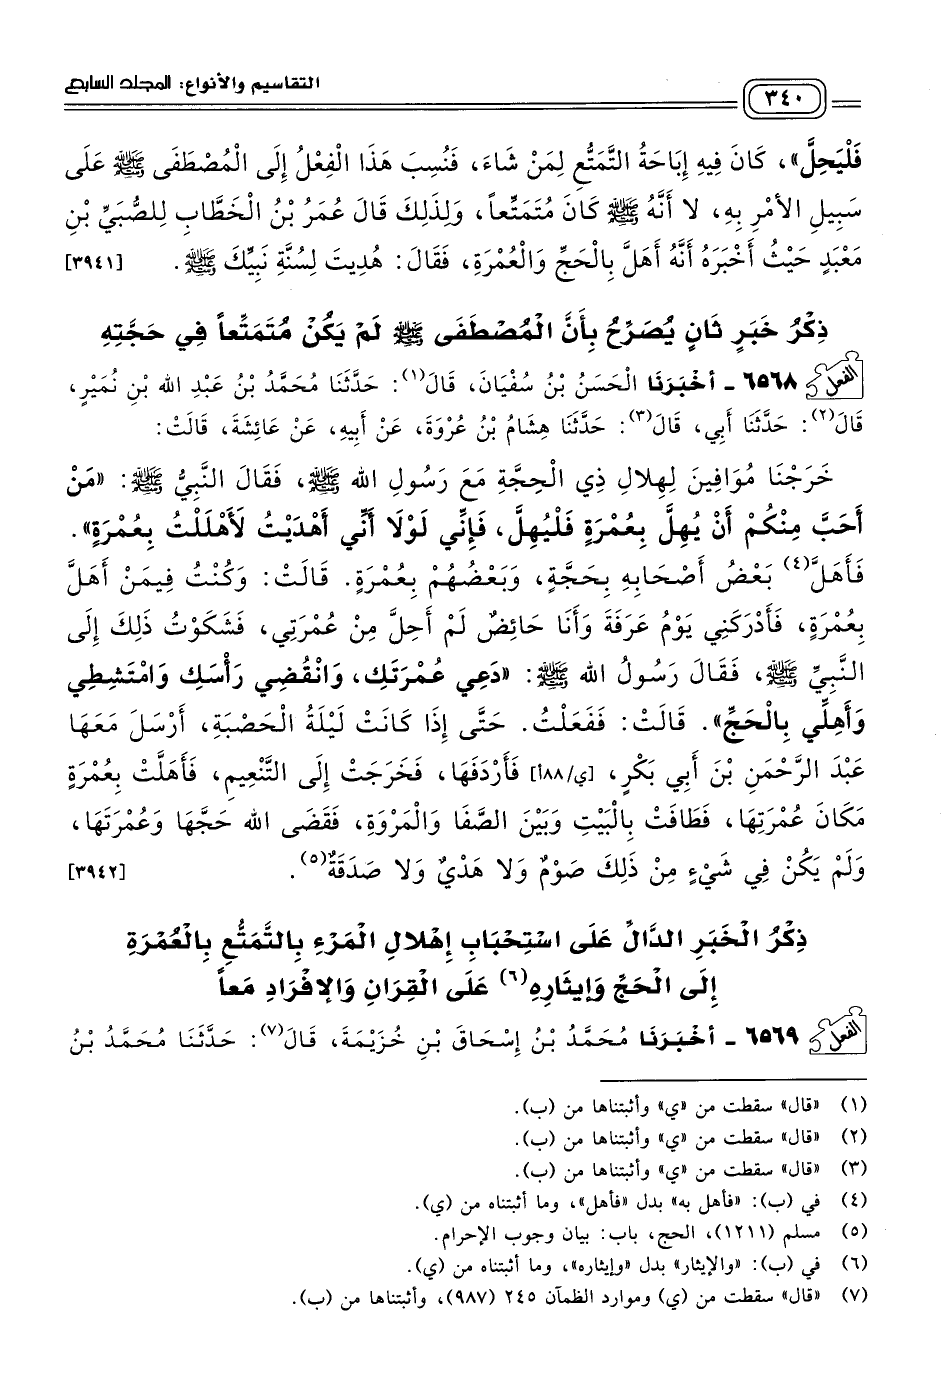 ٣٤٠
التقاسيم والأنواع: المجلد السابع
فَلْيَحِلَّ»، كَانَ فِيهِ إِبَاحَةُ التَّمَتُّعِ لِمَنْ شَاءَ، فَنُسِبَ هَذَا الْفِعْلُ إِلَى الْمُصْطَفَى ﷺ عَلَى
سَبِيلِ الأَمْرِ بِهِ، لا أَنَّهُ ﷺ كَانَ مُتَمَتِّعاً، وَلِذَلِكَ قَالَ عُمَرُ بْنُ الْخَطَّابِ لِلصُّبَيِّ بْنِ
مَعْبَدٍ حَيْثُ أَخْبَرَهُ أَنَّهُ أَهَلَّ بِالْحَجِّ وَالْعُمْرَةِ، فَقَالَ: هُدِيتَ لِسُنَّةِ نَبِيِّكَ ﷺ. [٣٩٤١]
ذِكْرُ خَبَرٍ ثَانٍ يُصَرِّحُ بِأَنَّ الْمُصْطَفَى ﷺ لَمْ يَكُنْ مُتَمَتِّعاً فِي حَجَّتِهِ
الفعل ٦٥٦٨ - أَخْبَرَنَا الْحَسَنُ بْنُ سُفْيَانَ، قَالَ(١): حَدَّثَنَا مُحَمَّدُ بْنُ عَبْدِ الله بْنِ نُمَيْرٍ،
قَالَ(٢): حَدَّثَنَا أَبِي، قَالَ(٣): حَدَّثَنَا هِشَامُ بْنُ عُرْوَةَ، عَنْ أَبِيهِ، عَنْ عَائِشَةَ، قَالَتْ:
خَرَجْنَا مُوَافِينَ لِهِلالِ ذِي الْحِجَّةِ مَعَ رَسُولِ الله ﷺ، فَقَالَ النَّبِيُّ ﷺ: «مَنْ
أَحَبَّ مِنْكُمْ أَنْ يُهِلَّ بِعُمْرَةٍ فَلْيُهِلَّ، فَإِنِّي لَوْلَا أَنِّي أَهْدَيْتُ لَأَهْلَلْتُ بِعُمْرَةٍ».
فَأَهَلَّ(٤) بَعْضُ أَصْحَابِهِ بِحَجَّةٍ، وَبَعْضُهُمْ بِعُمْرَةٍ. قَالَتْ: وَكُنْتُ فِيمَنْ أَهَلَّ
بِعُمْرَةٍ، فَأَدْرَكَنِي يَوْمُ عَرَفَةَ وَأَنَا حَائِضٌ لَمْ أَحِلَّ مِنْ عُمْرَتِي، فَشَكَوْتُ ذَلِكَ إِلَى
النَّبِيِّ ﷺ، فَقَالَ رَسُولُ الله ﷺ: «دَعِي عُمْرَتَكِ، وَانْقُضِي رَأْسَكِ وَامْتَشِطِي
وَأَهِلِّي بِالْحَجِّ». قَالَتْ: فَفَعَلْتُ. حَتَّى إِذَا كَانَتْ لَيْلَةُ الْحَصْبَةِ، أَرْسَلَ مَعَهَا
عَبْدَ الرَّحْمَنِ بْنَ أَبِي بَكْرٍ، [ي/١٨٨] فَأَرْدَفَهَا، فَخَرَجَتْ إِلَى التَّنْعِيمِ، فَأَهَلَّتْ بِعُمْرَةٍ
مَكَانَ عُمْرَتِهَا، فَطَافَتْ بِالْبَيْتِ وَبَيْنَ الصَّفَا وَالْمَرْوَةِ، فَقَضَى الله حَجَّهَا وَعُمْرَتَهَا،
وَلَمْ يَكُنْ فِي شَيْءٍ مِنْ ذَلِكَ صَوْمٌ وَلا هَدْيٌ وَلا صَدَقَةٌ(٥). [٣٩٤٢]
ذِكْرُ الْخَبَرِ الدَّالِّ عَلَى اسْتِحْبَابِ إِهْلالِ الْمَرْءِ بِالتَّمَتُّعِ بِالْعُمْرَةِ
إِلَى الْحَجِّ وَإِيثَارِهِ(٦) عَلَى الْقِرَانِ وَالإفْرَادِ مَعاً
الفعل ٦٥٦٩ - أَخْبَرَنَا مُحَمَّدُ بْنُ إِسْحَاقَ بْنِ خُزَيْمَةَ، قَالَ(٧): حَدَّثَنَا مُحَمَّدُ بْنُ
(١) «قال» سقطت من «ي» وأثبتناها من (ب).
(٢) «قال» سقطت من «ي» وأثبتناها من (ب).
(٣) «قال» سقطت من «ي» وأثبتناها من (ب).
(٤) في (ب): «فأهل به» بدل «فأهل»، وما أثبتناه من (ي).
(٥) مسلم (١٢١١)، الحج، باب: بيان وجوب الإحرام.
(٦) في (ب): «والإيثار» بدل «وإيثاره»، وما أثبتناه من (ي).
(٧) «قال» سقطت من (ي) وموارد الظمآن ٢٤٥ (٩٨٧)، وأثبتناها من (ب).